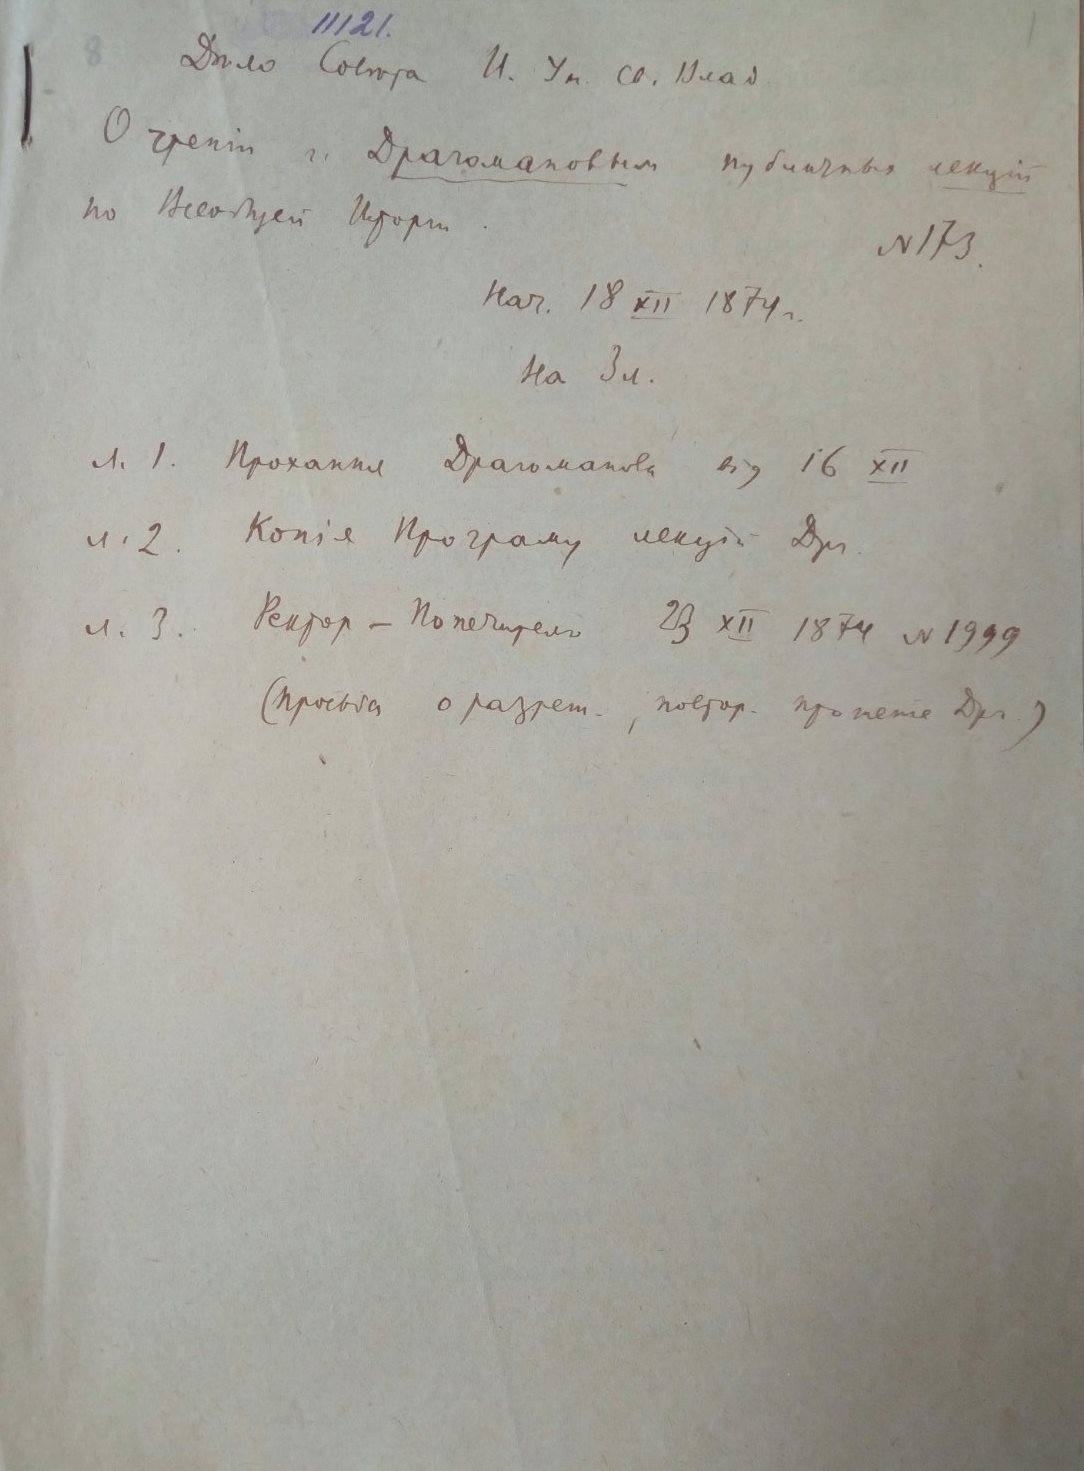 11121.
8
1
Дѣло Совѣта И. Ун. св. Влад.
О чтеніи г. Драгомановым публичных лекцій
по Всеобщей Исторіи.
№ 173.
Нач. 18 XII 1874 г.
На 3 л.
л. 1. Прохання Драгоманова від 16 XII
л. 2. Копія Програму лекцій Др.
л. 3. Ректор – Попечителю 23 XII 1874 № 1999
(просьба о разреш.,